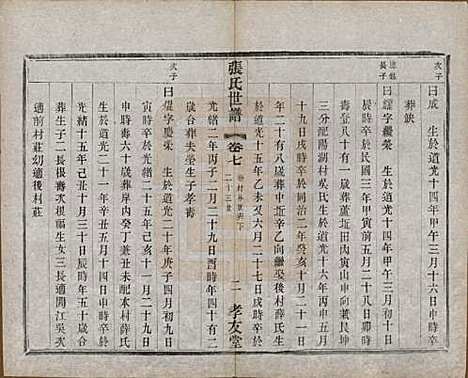 次子
曰成　生於道光十四年甲午三月十六日時卒
葬缺
長子
曰耀字繼榮　生於道光十四年甲午三月初十日
辰時卒於民國三年甲寅前五月二十八日卯時
享年八十一歲葬蘆垯田內寅山申向兼艮坤
三分
娶陽湖村吳氏生於道光十五年乙未十二月二
十九日戌時卒於同治二年癸亥十二月十一日
年二十有八歲葬中垯辛乙向繼娶後村薛氏生
於道光十五年乙未又六月二十七日戌時卒於
張氏世譜
卷七
二十三世
二
孝友堂
光緒二年丙子二月二十九日酉時年四十有二
歲合葬夫塋生子孝壽
次子
曰煜字慶榮　生於道光二十年庚子四月初九日
寅時卒於光緒二十五年己亥四月二十九日
申時壽六十歲葬丁癸兼丑未配本村薛氏
生於道光二十一年辛丑六月二十二日時卒於
光緒十五年己丑十月三十日時年五十歲合
葬生子二長根壽次根福生女三長適開江吳次
適前村莊幼適後村莊